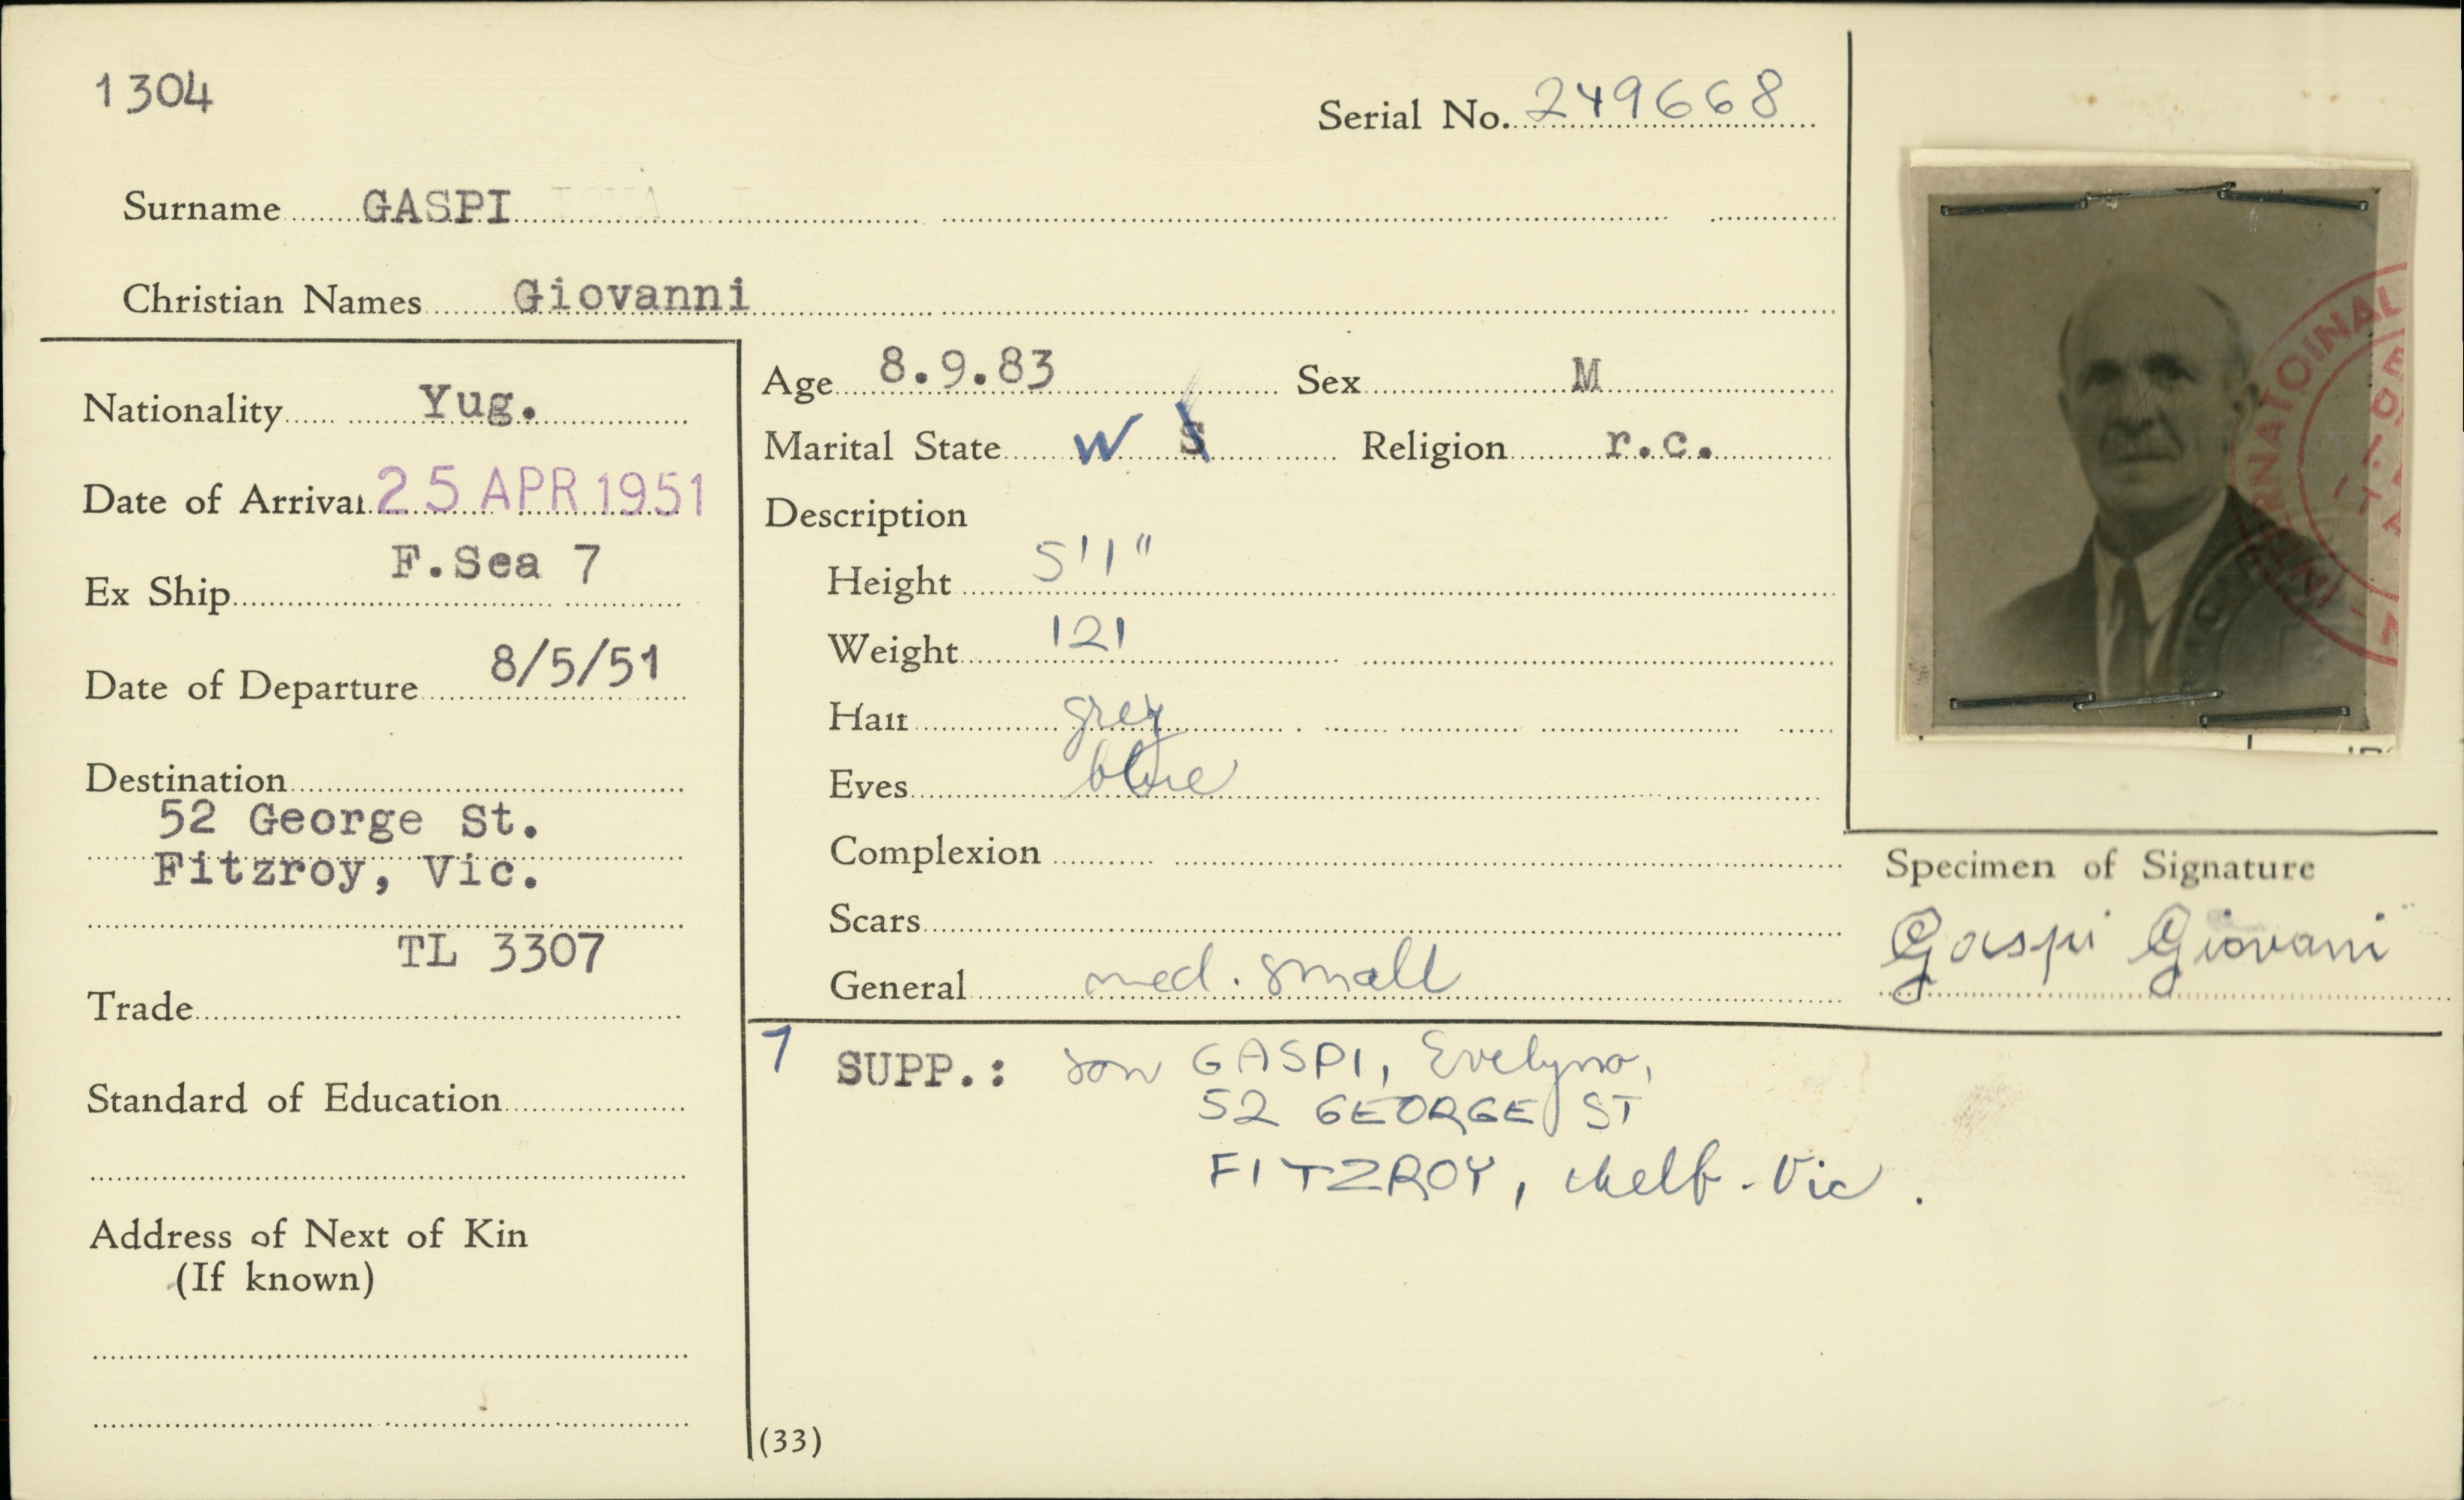 1304
Serial No. 249668
Surname GASPI
Christian Names Giovanni
Nationality Yug.
Date of Arrival 25 APR 1951
Ex Ship F.Sea 7
Date of Departure 8/5/51
Destination
52 George St.
Fitzroy, Vic.
TL 3307
Trade
Standard of Education
Address of Next of Kin
(If known)
Age 8.9.83 Sex M
Marital State W S Religion r.c.
Description
Height 5'1"
Weight 121
Hair grey
Eyes blue
Complexion
Scars
General med. small
INTERNATOINAL
Specimen of Signature
Gaspi Giovani
7 SUPP.: son GASPI, Evelyno,
52 GEORGE ST
FITZROY, Melb. Vic.
(33)